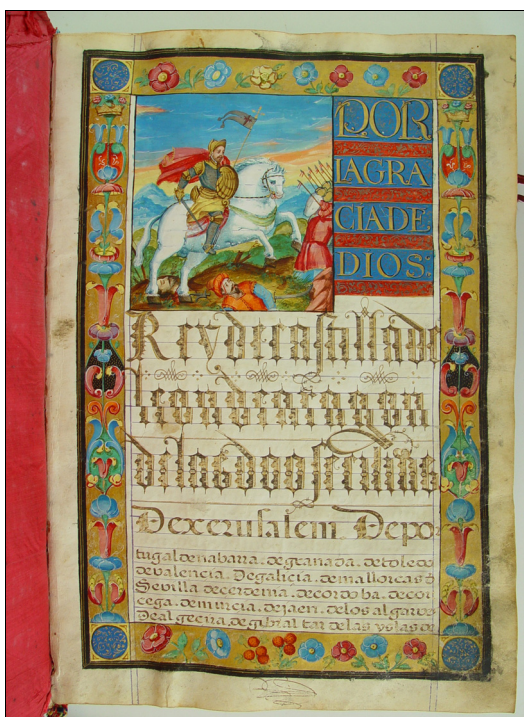 POR
LAGRA
CIADE
DIOS:
Reydecastillade
leondearagon
delasdossecilias
Dexerusalem Depor
tugal denabara. degranada. detoledo
devalencia. Degalicia. demallorcas d
Sevilla decerdena. decordoba. decor
cega. demurcia. dejaen. delos algarve
De algecira, de gibraltar delas yslas de